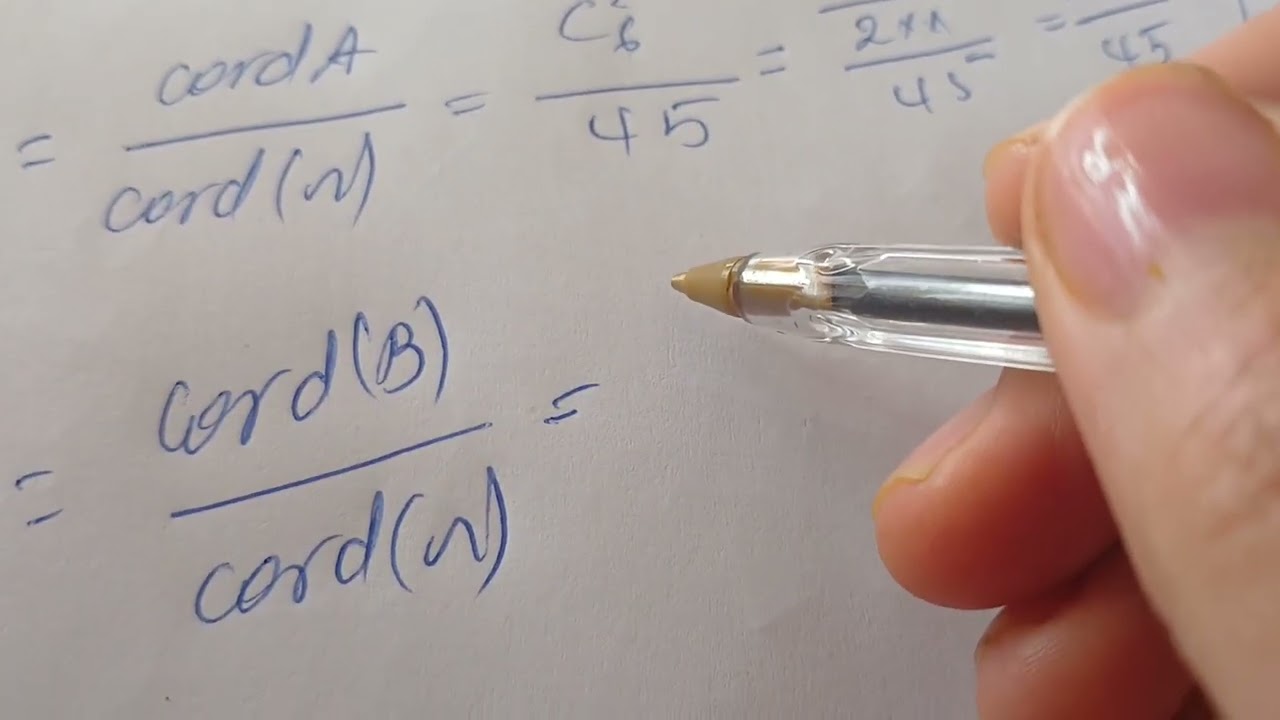 = cord A / cord(n) = C²₆ / 45 = 2×1 / 45 = / 45
= cord(B) / cord(n) =